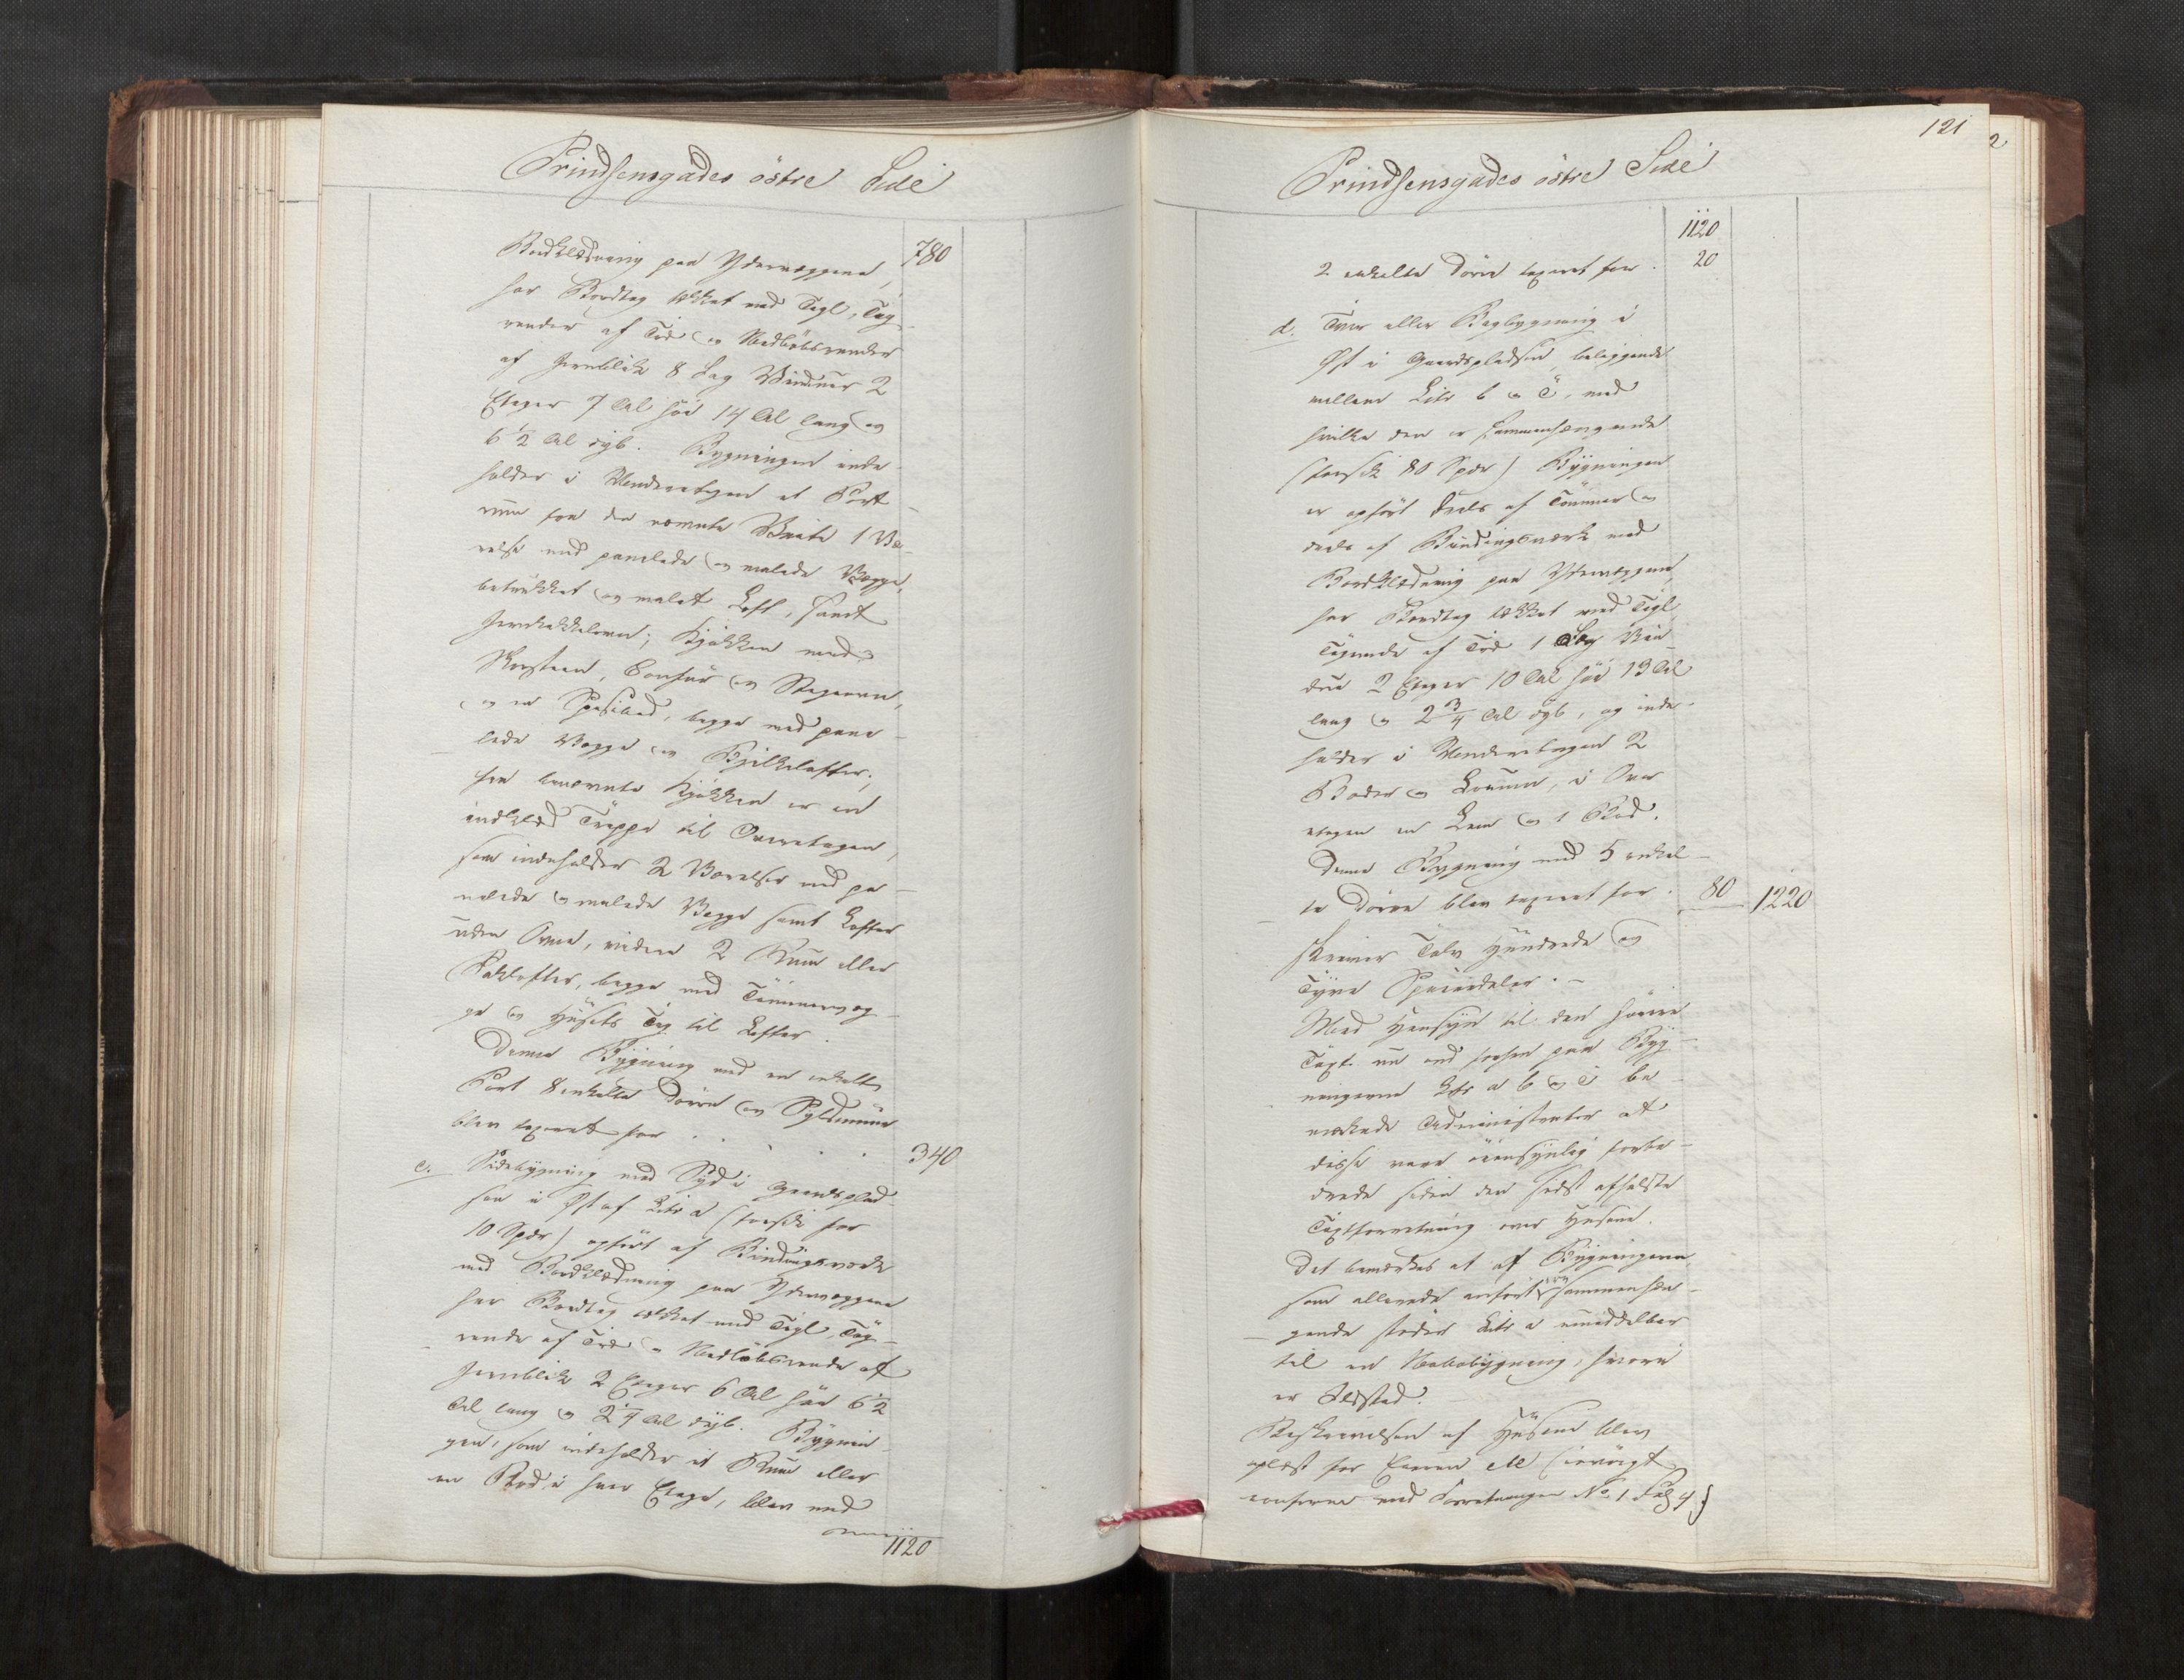 Prindsensgades östre Side
Bordklædning paa Ydervæggene, 780
har Bordtag tækket med Tegl, Tag-
render af Træ og Nedløbsrender
af Jernblik 8 Fag Vinduer 2
Etager 7 Al höi 14 Al lang og
6 1/2 Al dyb. Bygningen inde-
holder i Underetagen et Port-
rum fra den nævnte 1 Væ-
relse med panelede og malede Vægge,
betrukket og malet Loft, samt
Jernkakkelovn; Kjökken med
Skorsteen, Comfur og Bagerovn,
og en Spisebod, begge med pane-
lede Vægge og Bjelkelofter;
fra benævnte Kjökken er en
indklæd Trappe til Overetagen,
som indeholder 2 Værelser med pa-
nelede og malede Vægge samt Lofter
uden Ovne, videre 2 Rum eller
Paklofter, begge med Tömmervæg-
ge og Husets Tag til Lofter.
Denne Bygning med en enkelt
Port 8 enkelte Dörre og Syldmuur
blev taxeret for . . . . 340
c. Sidebygning mod Syd i Gaardsplad-
sen i Øst af Litr a (forsik for
10 Spdr) opfört af Bindingsværk
med Bordklædning paa Ydervæggene
har Bordtag tækket med Tegl, Tag-
rende af Træ og Nedløbsrende af
Jernblik 2 Etager 6 Al höi 6 1/2
Al lang og 2 1/4 Al dyb. Bygnin-
gen, som indeholder et Rum eller
en Bod i hver Etage, blev med
1120
121
2
Prindsensgades östre Side
1120
2 enkelte Dörre taxeret for . 20
d. Tver eller Bagbygning i
Øst i Gaardspladsen, beliggende
mellem Litr b og c, med
hvilke den er sammenhængende
(forsik 80 Spdr) Bygningen
er opfört deels af Tömmer og
deels af Bindingsværk med
Bordklædning paa Ydervæggene,
har Bordtag tækket med Tegl,
Tagrende af Træ 1 Fag Vin-
due 2 Etager 10 Al höi 13 Al
lang og 2 3/4 Al dyb, og inde-
holder i Underetagen 2
Boder og Locum, i Over-
etagen en Lem og 1 Bod.
Denne Bygning med 5 enkel-
te Dörre blev taxeret for . 80 1220
skriver Tolv Hundrede og
Tyve Speciedaler. -
Med Hensyn til den höiere
Taxt nu end forhen paa Byg-
ningerne Litr a b og c be-
mærkede Administrator at
disse vare öiensynlig forbe-
drede siden den sidst afholdte
Taxtforretning over Husene.
Det bemærkes at af Bygningerne,
som allerede anfört sammenhæn-
gende støder Litr a umiddelbar
til en Nabobygning, hvori
er Ildsted.
Beskrivelsen af Husene blev
oplæst for Eieren (iövrigt
confereres med Forretningen No 1 Fol 4)